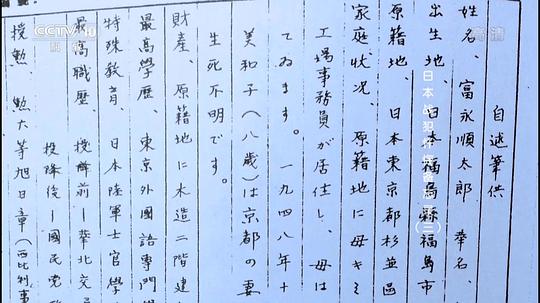 CCTV 10
科教
高清
日本战犯忏悔备忘录(三)
自述筆供
姓名、富永順太郎 華名、
出生地、日本福島縣福島市
原籍地、日本東京都杉並區
家庭状況、原籍地に母キミ
工場事務員が居住し、母は
てゐます。一九四八年十
美和子(八歳)は京都の妻
生死不明です。
財産、原籍地に木造二階建
最高學歴 東京外國語専門學
特殊教育、日本陸軍士官學
最高職歴、投降前ー華北交
投降後ー國民党
授勲 勲六等旭日章(西比利事